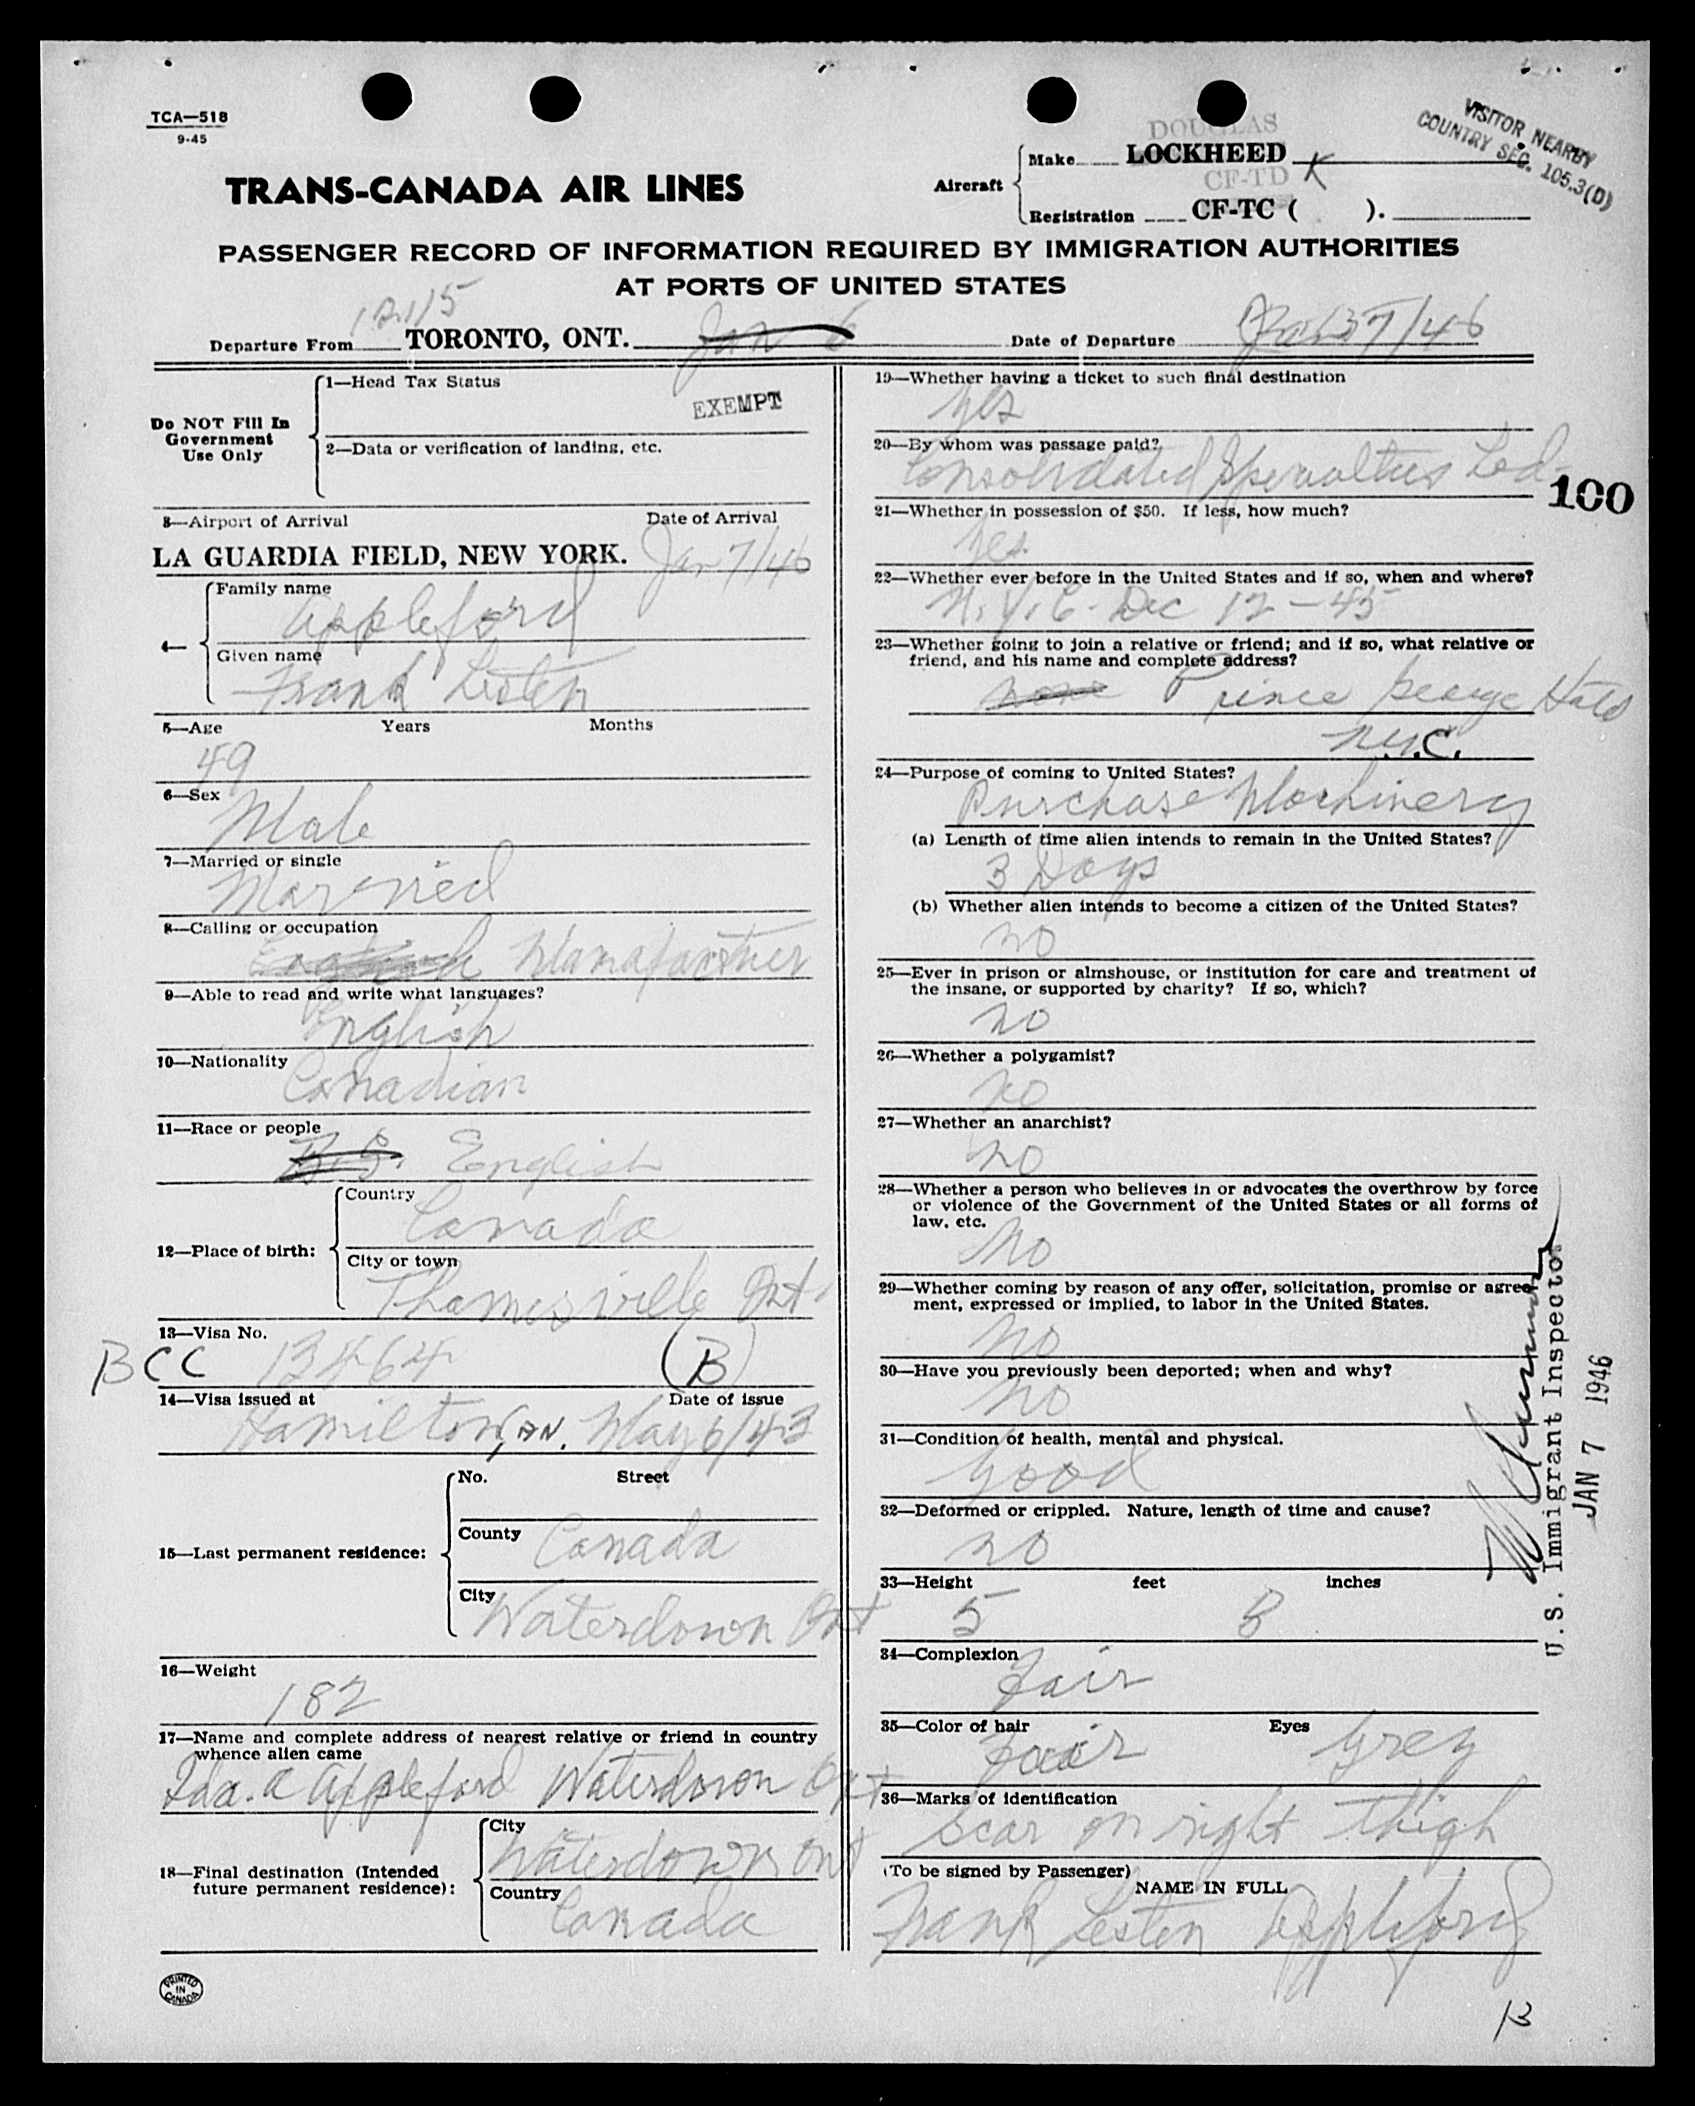 TCA—518
9-45
VISITOR NEARBY
COUNTRY SEC. 105.3(D)
DOUGLAS
Aircraft
Make LOCKHEED
CF-TD K
Registration CF-TC ( ).
TRANS-CANADA AIR LINES
PASSENGER RECORD OF INFORMATION REQUIRED BY IMMIGRATION AUTHORITIES
AT PORTS OF UNITED STATES
Departure From TORONTO, ONT. Jan 6 Date of Departure 7/46
Do NOT Fill In
Government
Use Only
1—Head Tax Status
EXEMPT
2—Data or verification of landing, etc.
3—Airport of Arrival Date of Arrival
LA GUARDIA FIELD, NEW YORK. Jan 7/46
4—
Family name
Appleford
Given name
Frank Lesten
5—Age Years Months
49
6—Sex
Male
7—Married or single
Married
8—Calling or occupation
Manafacturer
9—Able to read and write what languages?
English
10—Nationality
Canadian
11—Race or people
English
12—Place of birth:
Country
Canada
City or town
Thamesville Ont
13—Visa No.
BCC 13464 (B)
14—Visa issued at Date of issue
Hamilton, May 6/43
15—Last permanent residence:
No. Street
County Canada
City
Waterdown Ont
16—Weight
182
17—Name and complete address of nearest relative or friend in country
whence alien came
Ida. A Appleford Waterdown Ont
18—Final destination (Intended
future permanent residence):
City
Waterdown Ont
Country
Canada
PRINTED
IN
CANADA
19—Whether having a ticket to such final destination
Yes
20—By whom was passage paid?
Consolidated Specialties Ltd
100
21—Whether in possession of $50. If less, how much?
Yes
22—Whether ever before in the United States and if so, when and where?
N.Y.C - Dec 12 - 45
23—Whether going to join a relative or friend; and if so, what relative or
friend, and his name and complete address?
none Prince George Hotel
NY.C.
24—Purpose of coming to United States?
Purchase Machinery
(a) Length of time alien intends to remain in the United States?
3 Days
(b) Whether alien intends to become a citizen of the United States?
no
25—Ever in prison or almshouse, or institution for care and treatment of
the insane, or supported by charity? If so, which?
no
26—Whether a polygamist?
no
27—Whether an anarchist?
no
28—Whether a person who believes in or advocates the overthrow by force
or violence of the Government of the United States or all forms of
law, etc.
No
29—Whether coming by reason of any offer, solicitation, promise or agree-
ment, expressed or implied, to labor in the United States.
no
30—Have you previously been deported; when and why?
no
31—Condition of health, mental and physical.
Good
32—Deformed or crippled. Nature, length of time and cause?
no
33—Height feet inches
5 8
34—Complexion
Fair
35—Color of hair Eyes
Fair Grey
36—Marks of identification
Scar on right thigh
(To be signed by Passenger)
NAME IN FULL
Frank Lesten Appleford
U.S. Immigrant Inspector
JAN 7 1946
13